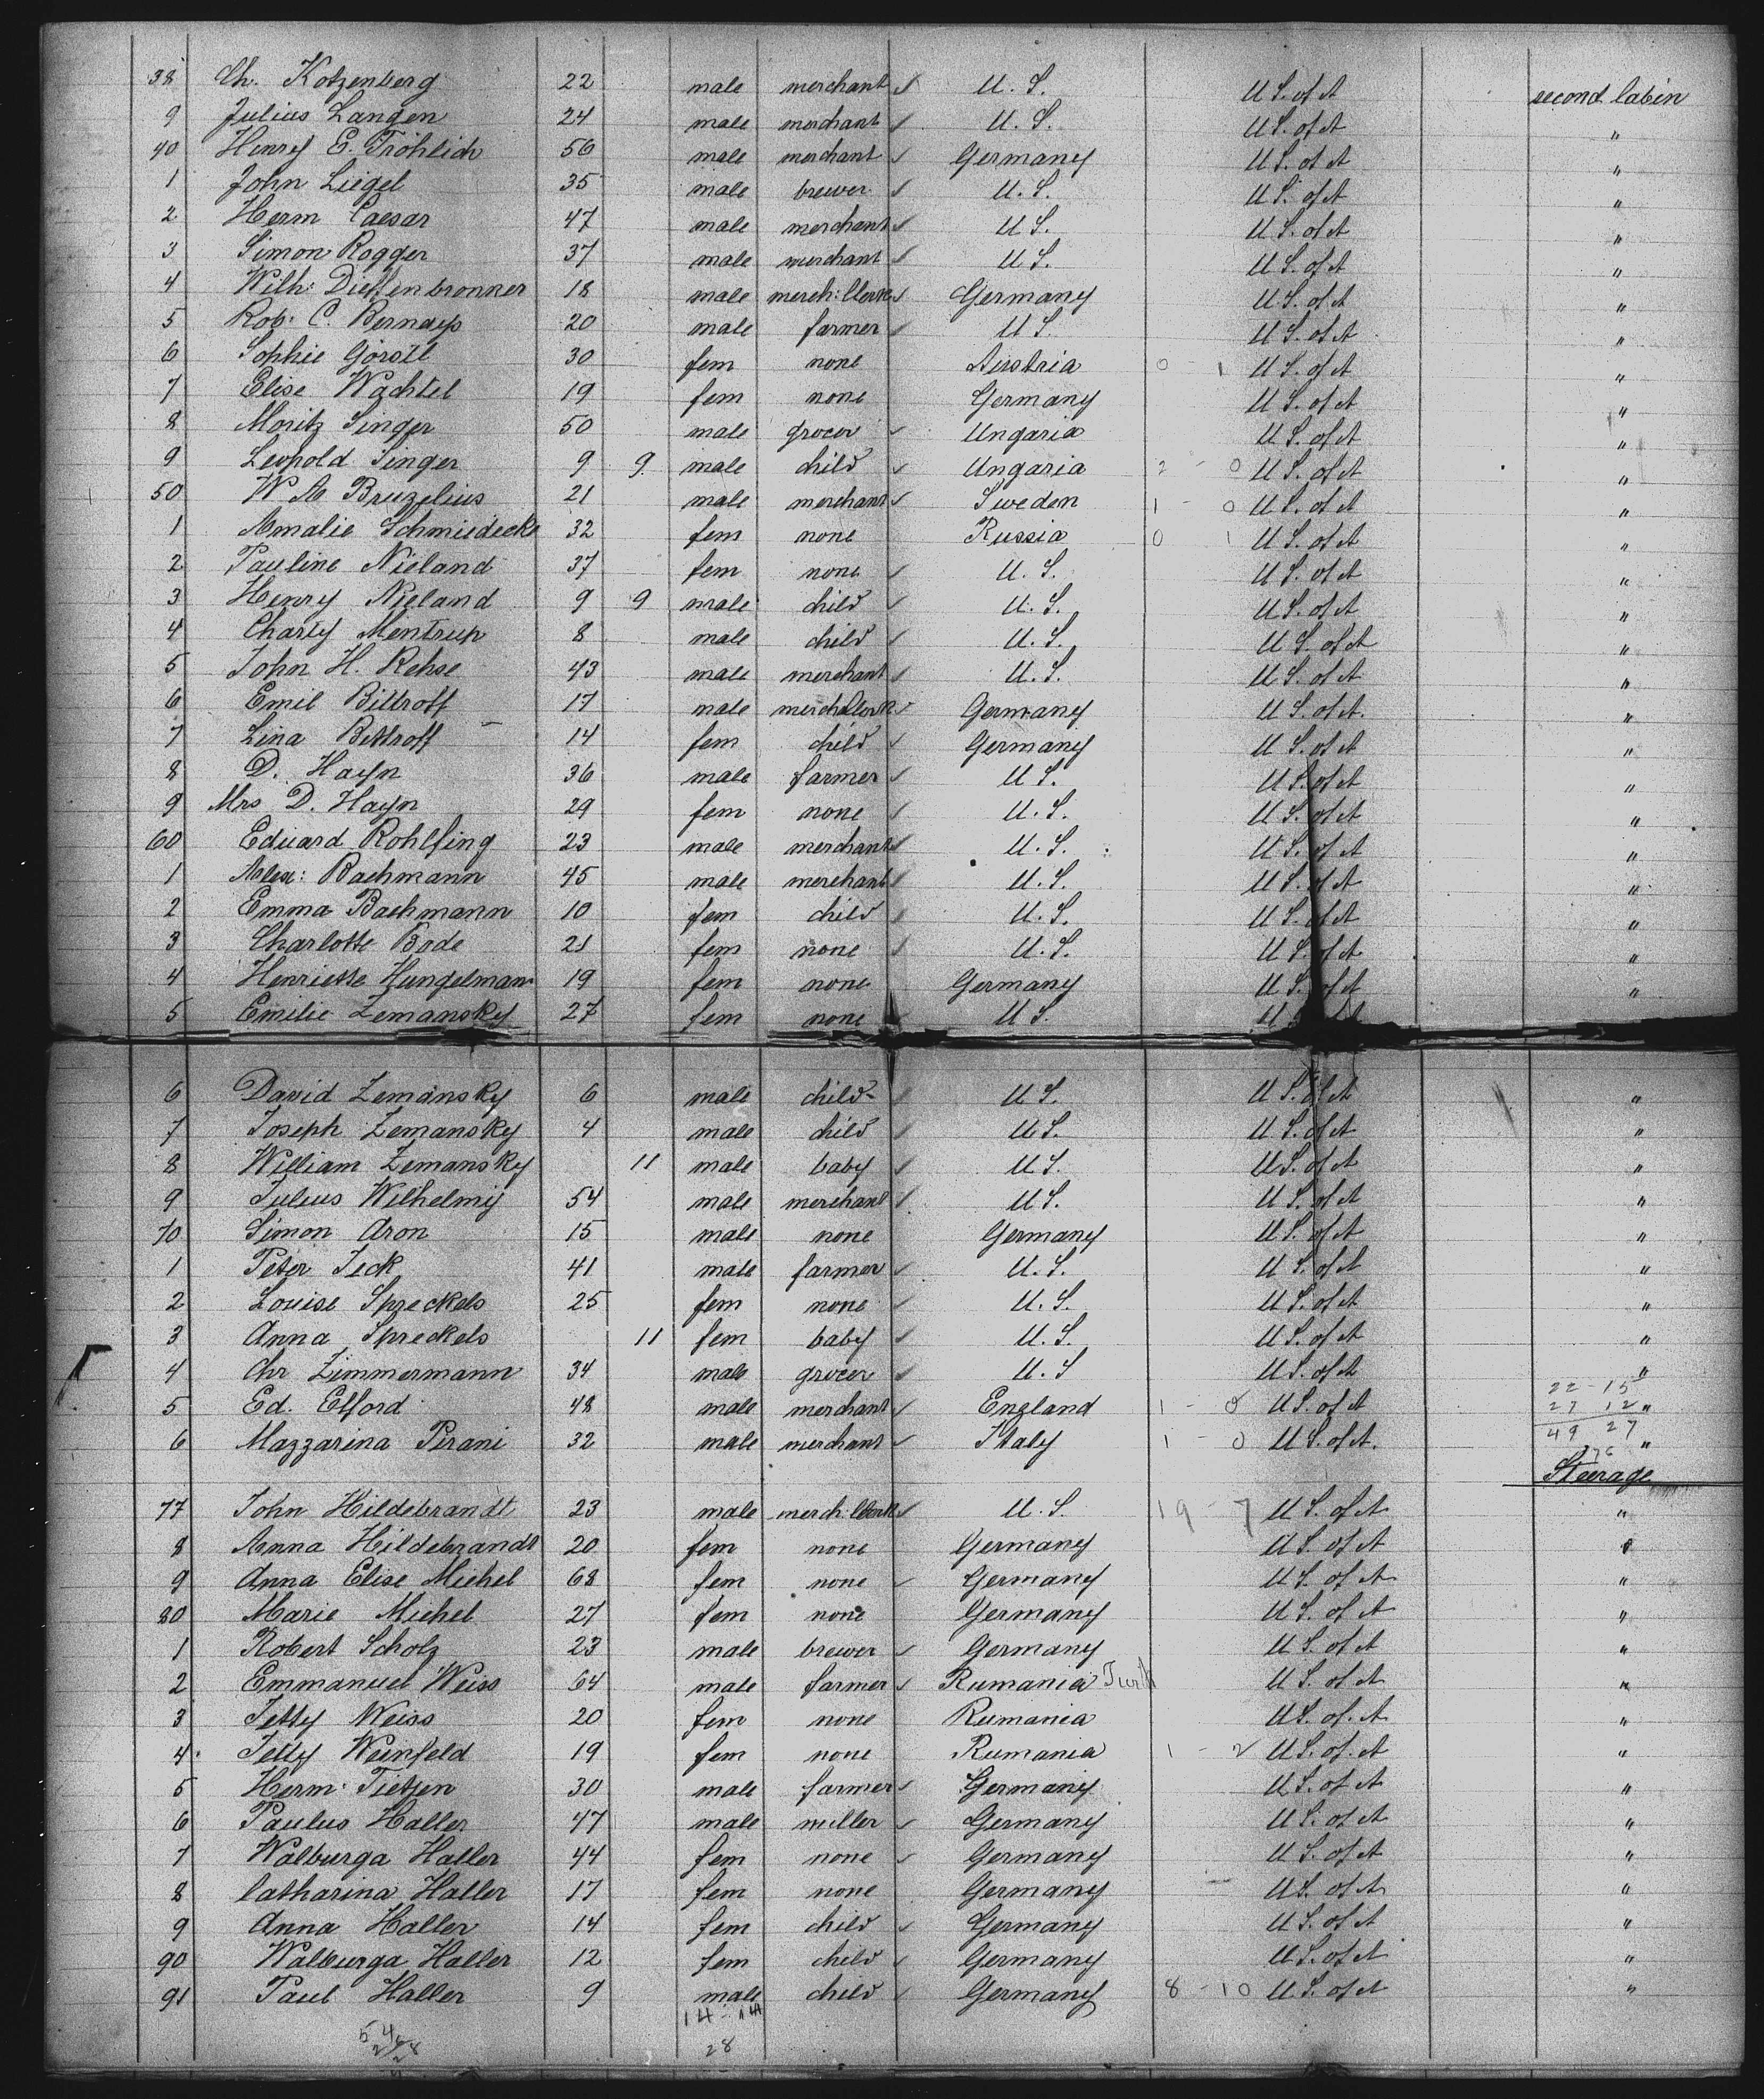 38 Ch. Kotzenberg 22 male merchant U. S. U S. of A second Cabin
9 Julius Langen 24 male merchant U. S. U S. of A "
40 Henry E. Fröhlich 56 male merchant Germany U S. of A "
1 John Liegel 35 male brewer U. S. U S. of A "
2 Herm Caesar 47 male merchant U S. U S. of A "
3 Simon Rogger 37 male merchant U S. U S. of A "
4 Wilh: Dieffenbronner 18 male merch: Clerk Germany U. S. of A "
5 Rob: C. Bernays 20 male farmer U S. U S. of A "
6 Sophie Görstl 30 fem none Austria 0 - 1 U S. of A "
7 Elise Wachtel 19 fem none Germany U S. of A "
8 Moritz Singer 50 male grocer Ungaria U S. of A "
9 Leopold Singer 9 9. male child Ungaria 2 - 0 U S. of A "
50 W A Bruzelius 21 male merchant Sweden 1 - 0 U S. of A "
1 Amalie Schmiedecke 32 fem none Russia 0 1 U S. of A "
2 Pauline Nieland 37 fem none U. S. U S. of A "
3 Henry Nieland 9 9 male child U. S. U S. of A "
4 Charly Mentrup 8 male child U. S. U S. of A "
5 John H. Rehse 43 male merchant U. S. U S. of A "
6 Emil Bittroff 17 male merch Clerk Germany U S. of A. "
7 Lina Bittroff 14 fem child Germany U S. of A "
8 D. Hayn 36 male farmer U S. U S. of A "
9 Mrs D. Hayn 29 fem none U. S. U S. of A "
60 Eduard Rohlfing 23 male merchant U. S. U S. of A "
1 Alex: Bachmann 45 male merchant U. S. U S. of A "
2 Emma Bachmann 10 fem child U. S. U S. of A "
3 Charlotte Bode 21 fem none U. S. U S. of A "
4 Henriette Hungelmann 19 fem none Germany U S. of A "
5 Emilie Zemansky 27 fem none U S. U
6 David Zemansky 6 male child U S. U S. of A "
7 Joseph Zemansky 4 male child U S. U S. of A "
8 William Zemansky 11 male baby U S. U S. of A "
9 Julius Wilhelmy 54 male merchant U S. U S. of A "
70 Simon Aron 15 male none Germany U S. of A "
1 Peter Jeck 41 male farmer U. S. U S. of A "
2 Louise Spreckels 25 fem none U. S. U S. of A "
3 Anna Spreckels 11 fem baby U. S. U S. of A "
4 Chr Zimmermann 34 male grocer U. S U S. of A "
22 - 15
5 Ed. Elford 48 male merchant England 1 - 0 U S. of A 27 12 "
49 27
6 Mazzarina Pirani 32 male merchant Italy 1 - 0 U S. of A. 76 "
Steerage
77 John Hildebrandt 23 male merch: Clerk U. S. 19 - 7 U S. of A "
8 Anna Hildebrandt 20 fem none Germany U S. of A "
9 Anna Elise Michel 68 fem none Germany U S. of A "
80 Marie Michel 27 fem none Germany U S. of A "
1 Robert Scholz 23 male brewer Germany U S. of A "
2 Emmanuel Weiss 64 male farmer Rumania Turk U S. of A "
3 Jetty Weiss 20 fem none Rumania U S. of. A "
4 Jetty Weinfeld 19 fem none Rumania 1 - 2 U S. of. A "
5 Herm: Tietjen 30 male farmer Germany U S. of A "
6 Paulus Haller 47 male miller Germany U S. of A "
7 Walburga Haller 44 fem none Germany U S. of A "
8 Catharina Haller 17 fem none Germany U S. of A "
9 Anna Haller 14 fem child Germany U S. of A "
90 Walburga Haller 12 fem child Germany U S. of A "
91 Paul Haller 9 male child Germany 8 - 10 U S. of A "
14 - 14
28